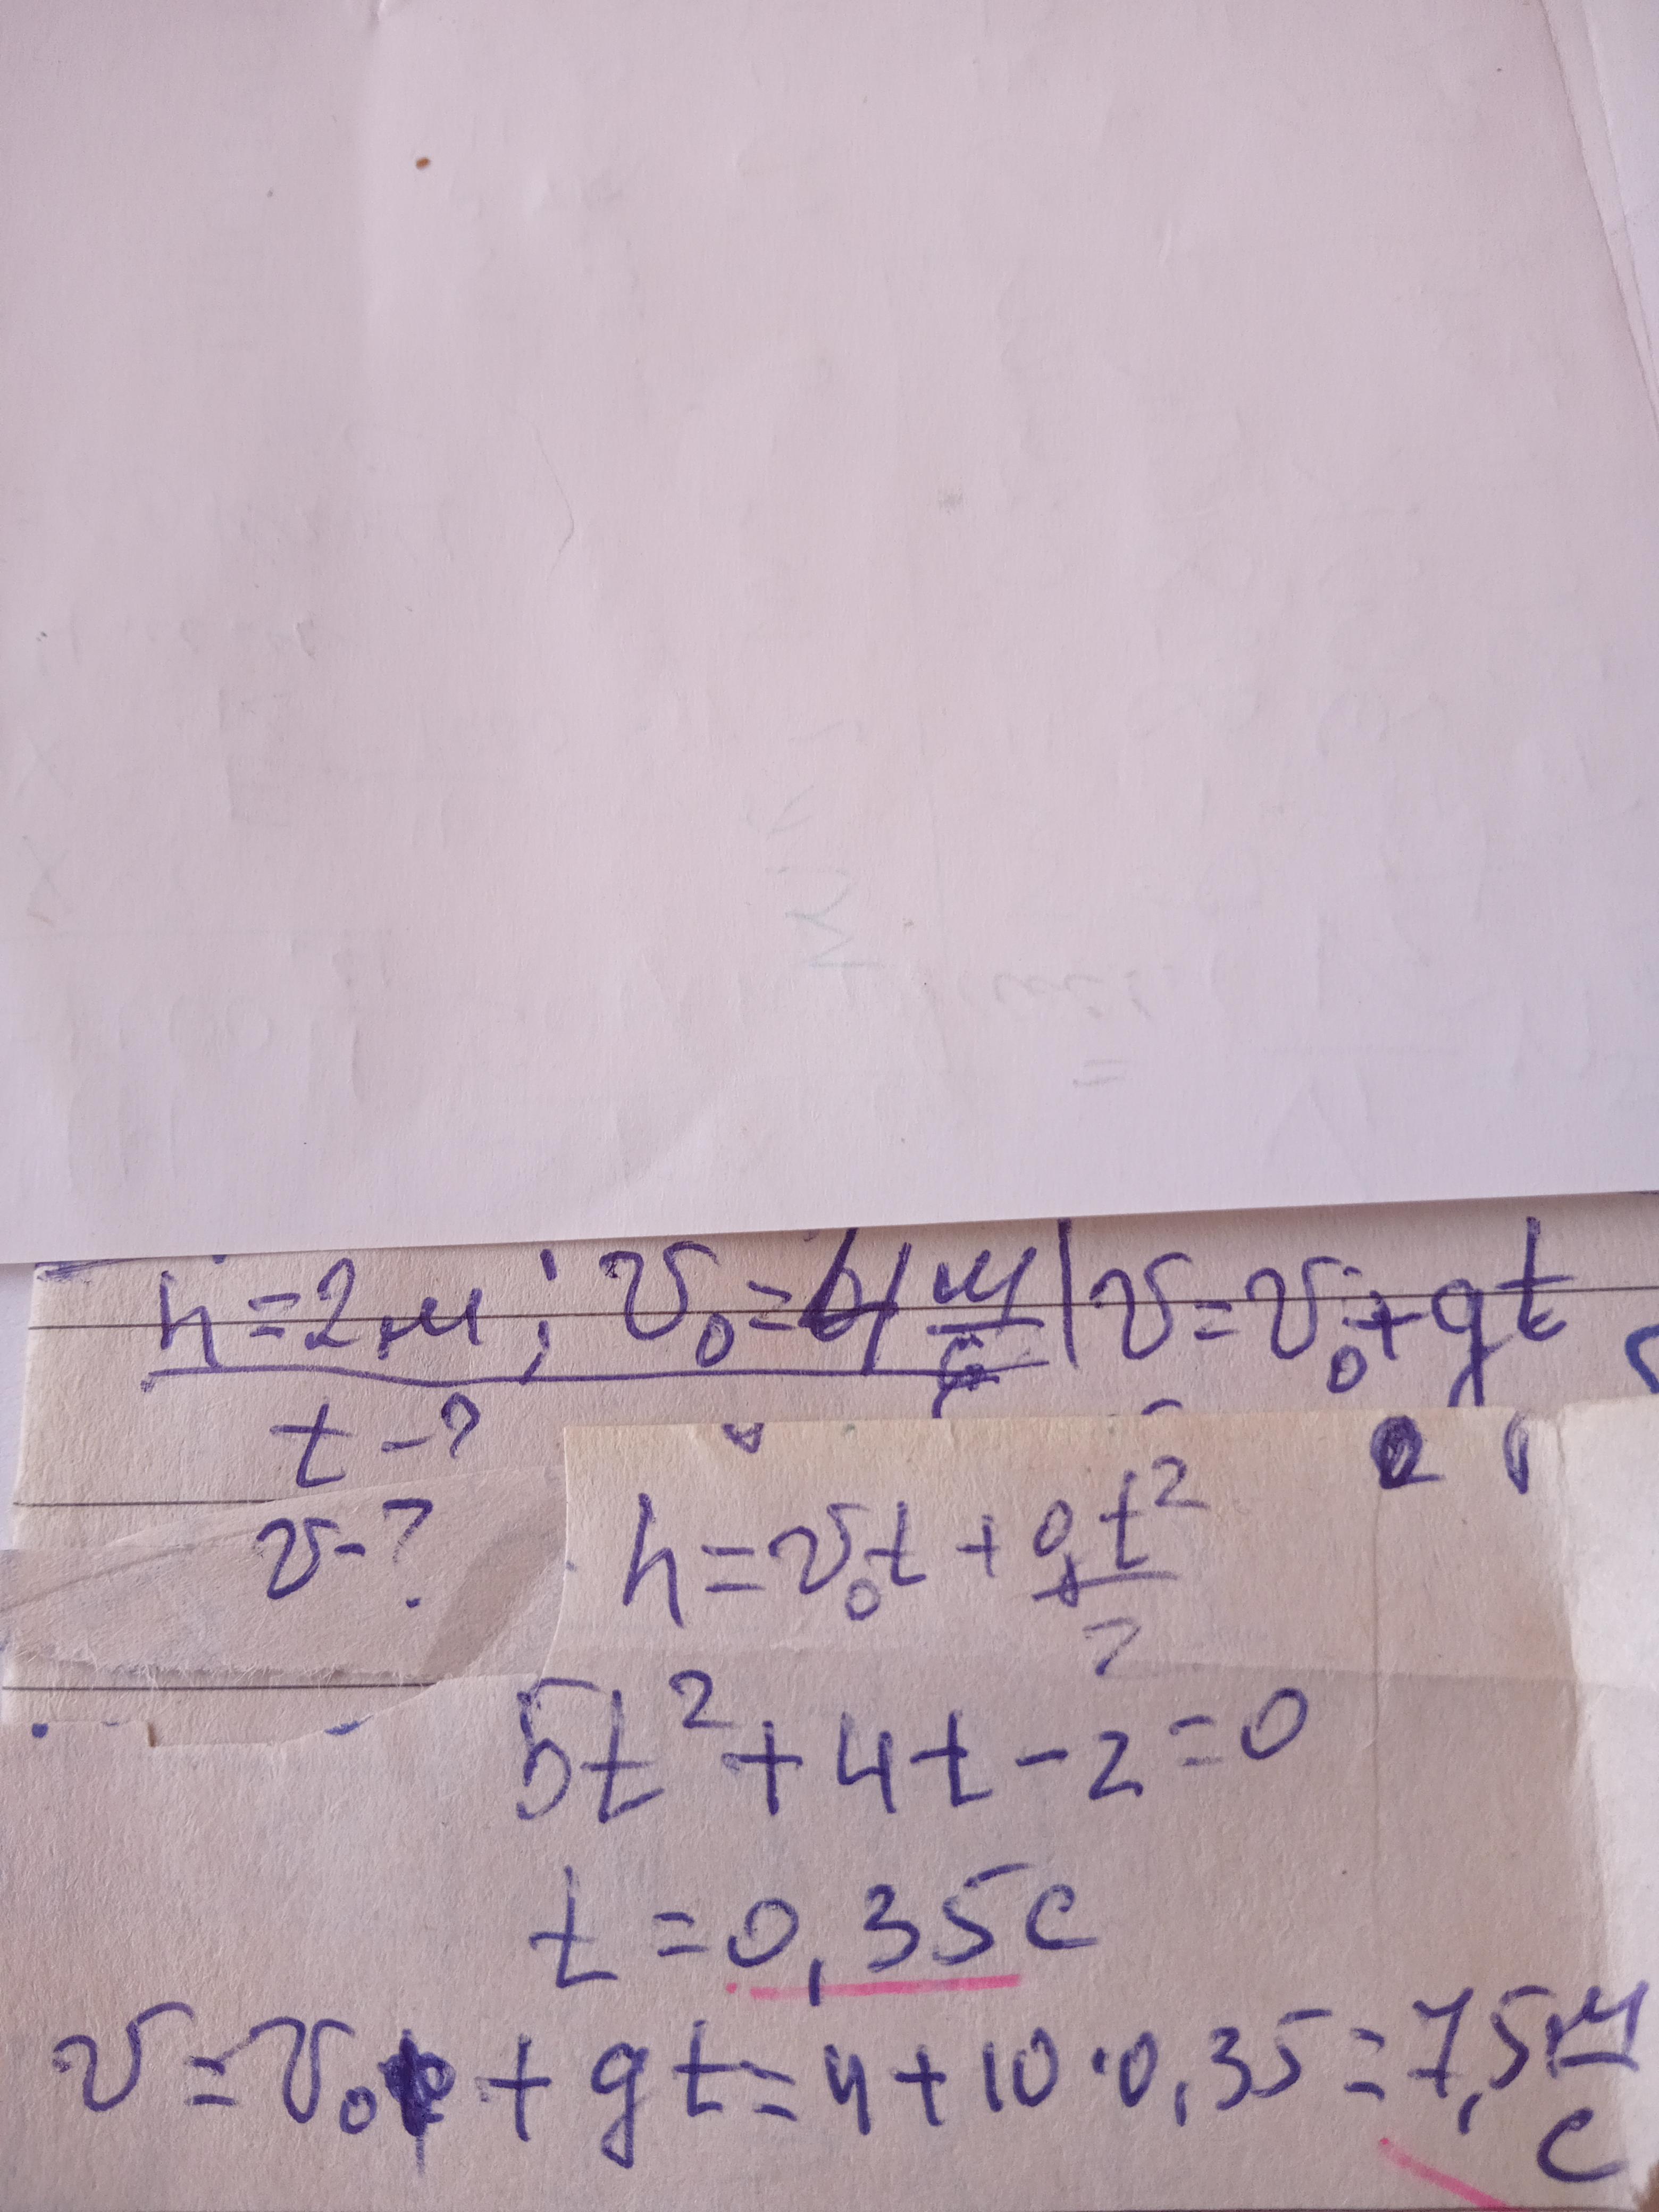 h=2м; v₀=4 м/с | v=v₀+gt
t-?
v-?
h=v₀t+gt²/2
5t²+4t-2=0
t=0,35с
v=v₀+gt=4+10·0,35=7,5 м/с